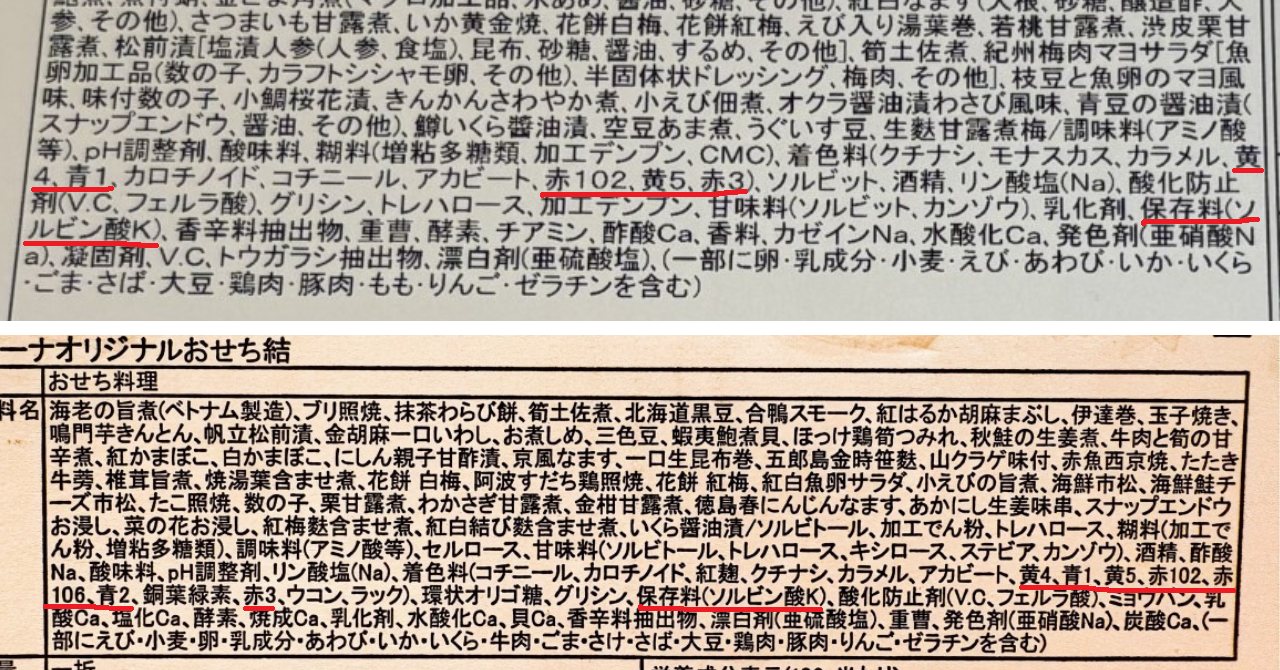 参、その他)、さつまいも甘露煮、いか黄金焼、花餅白梅、花餅紅梅、えび入り湯葉巻、若桃甘露煮、渋皮栗甘
露煮、松前漬[塩漬人参(人参、食塩)、昆布、砂糖、醤油、するめ、その他]、筍土佐煮、紀州梅肉マヨサラダ[魚
卵加工品(数の子、カラフトシシャモ卵、その他)、半固体状ドレッシング、梅肉、その他]、枝豆と魚卵のマヨ風
味、味付数の子、小鯛桜花漬、きんかんさわやか煮、小えび佃煮、オクラ醤油漬わさび風味、青豆の醤油漬(
スナップエンドウ、醤油、その他)、鱒いくら醬油漬、空豆あま煮、うぐいす豆、生麩甘露煮梅/調味料(アミノ酸
等)、pH調整剤、酸味料、糊料(増粘多糖類、加工デンプン、CMC)、着色料(クチナシ、モナスカス、カラメル、黄
4、青1、カロチノイド、コチニール、アカビート、赤102、黄5、赤3)、ソルビット、酒精、リン酸塩(Na)、酸化防止
剤(V.C、フェルラ酸)、グリシン、トレハロース、加工デンプン、甘味料(ソルビット、カンゾウ)、乳化剤、保存料(ソ
ルビン酸K)、香辛料抽出物、重曹、酵素、チアミン、酢酸Ca、香料、カゼインNa、水酸化Ca、発色剤(亜硝酸N
a)、凝固剤、V.C、トウガラシ抽出物、漂白剤(亜硫酸塩)、(一部に卵・乳成分・小麦・えび・あわび・いか・いくら
・ごま・さば・大豆・鶏肉・豚肉・もも・りんご・ゼラチンを含む)
ーナオリジナルおせち結
おせち料理
料名
海老の旨煮(ベトナム製造)、ブリ照焼、抹茶わらび餅、筍土佐煮、北海道黒豆、合鴨スモーク、紅はるか胡麻まぶし、伊達巻、玉子焼き、
鳴門芋きんとん、帆立松前漬、金胡麻一口いわし、お煮しめ、三色豆、蝦夷鮑煮貝、ほっけ鶏筍つみれ、秋鮭の生姜煮、牛肉と筍の甘
辛煮、紅かまぼこ、白かまぼこ、にしん親子甘酢漬、京風なます、一口生昆布巻、五郎島金時笹麩、山クラゲ味付、赤魚西京焼、たたき
牛蒡、椎茸旨煮、焼湯葉含ませ煮、花餅 白梅、阿波すだち鶏照焼、花餅 紅梅、紅白魚卵サラダ、小えびの旨煮、海鮮市松、海鮮鮭チ
ーズ市松、たこ照焼、数の子、栗甘露煮、わかさぎ甘露煮、金柑甘露煮、徳島春にんじんなます、あかにし生姜味串、スナップエンドウ
お浸し、菜の花お浸し、紅梅麩含ませ煮、紅白結び麩含ませ煮、いくら醤油漬/ソルビトール、加工でん粉、トレハロース、糊料(加工で
ん粉、増粘多糖類)、調味料(アミノ酸等)、セルロース、甘味料(ソルビトール、トレハロース、キシロース、ステビア、カンゾウ)、酒精、酢酸
Na、酸味料、pH調整剤、リン酸塩(Na)、着色料(コチニール、カロチノイド、紅麹、クチナシ、カラメル、アカビート、黄4、青1、黄5、赤102、赤
106、青2、銅葉緑素、赤3、ウコン、ラック)、環状オリゴ糖、グリシン、保存料(ソルビン酸K)、酸化防止剤(V.C、フェルラ酸)、ミョウバン、乳
酸Ca、塩化Ca、酵素、焼成Ca、乳化剤、水酸化Ca、貝Ca、香辛料抽出物、漂白剤(亜硫酸塩)、重曹、発色剤(亜硝酸Na)、炭酸Ca、(一
部にえび・小麦・卵・乳成分・あわび・いか・いくら・牛肉・ごま・さけ・さば・大豆・鶏肉・豚肉・りんご・ゼラチンを含む)